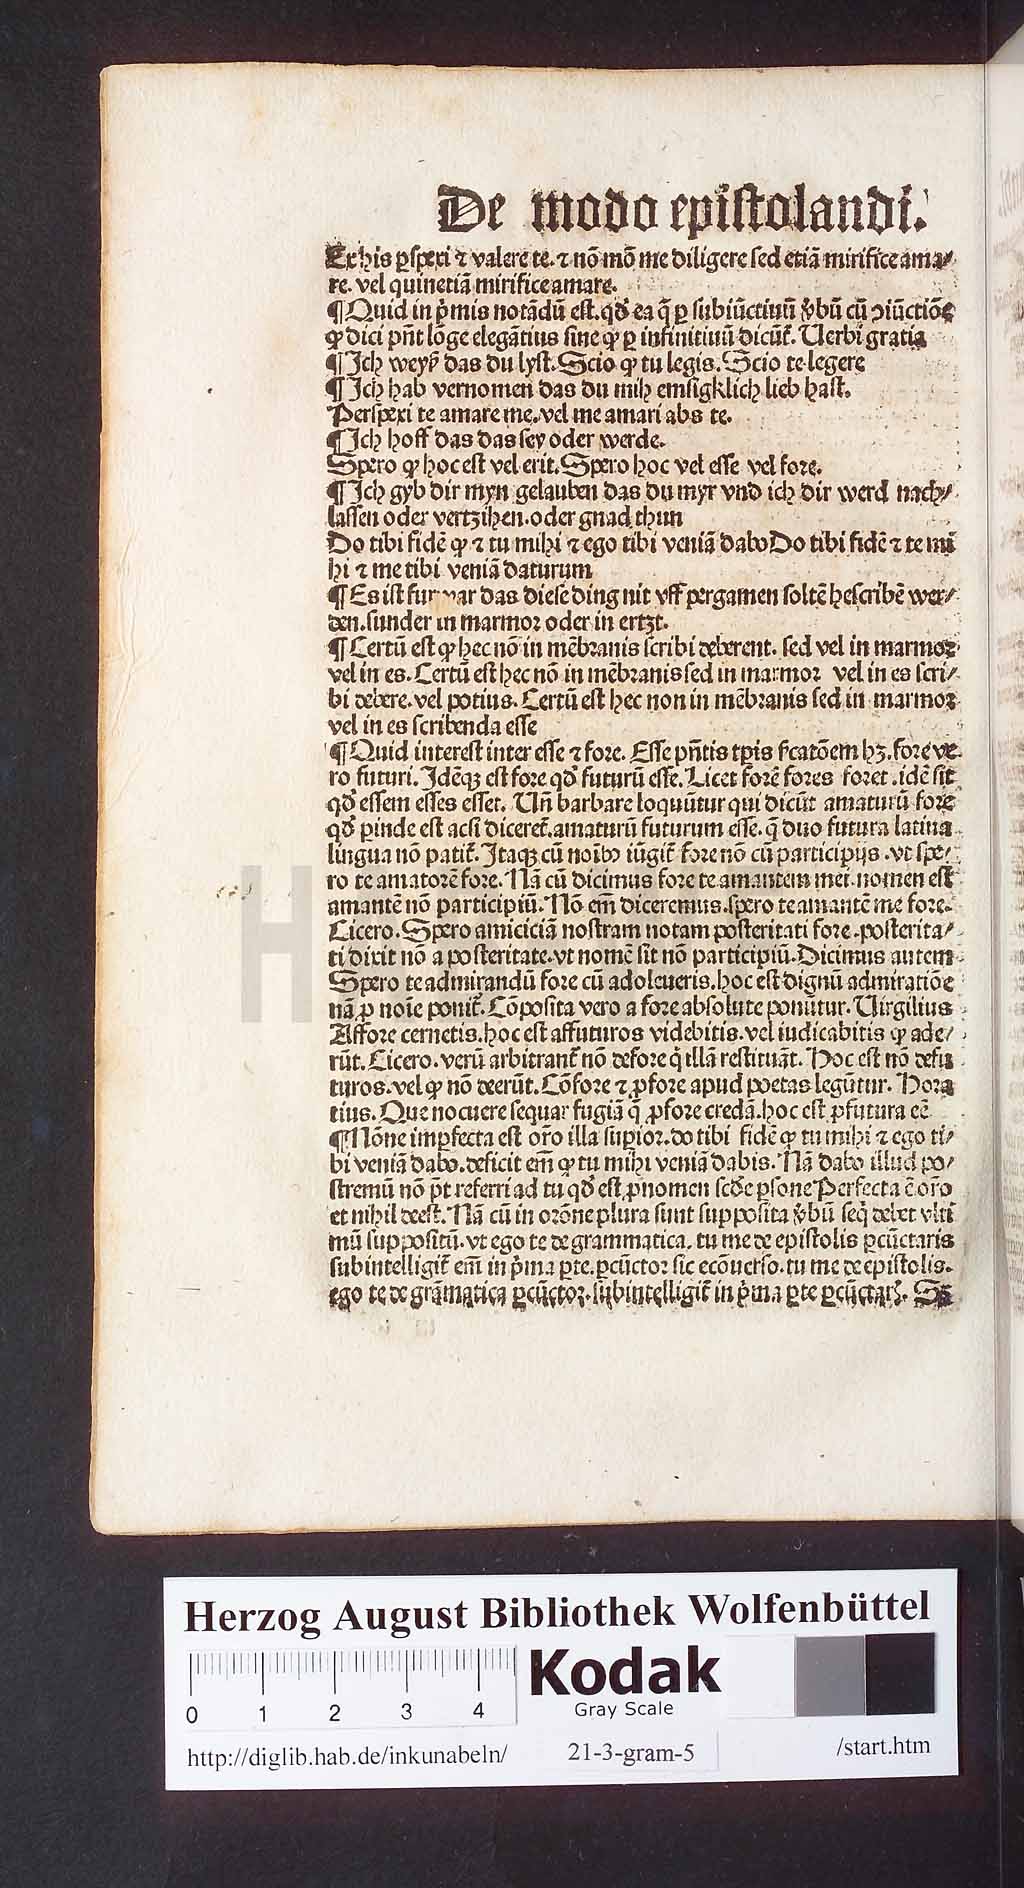 De modo epistolandi.
Ex his ꝑspexi ⁊ valere te. ⁊ nō mō me diligere sed etiā mirifice ama⸗
re. vel quinetiā mirifice amare.
¶Quid in p̓mis notādū est. qd̓ ea q̄ ꝑ subiūctiuū v̓bū cū ↄiūctiōe
ꝙ dici pn̄t lōge elegātius sine ꝙ ꝑ infinitiuū dicūt̄. Uerbi gratia
¶Ich weyß das du lyst. Scio ꝙ tu legis. Scio te legere
¶Ich hab vernomen das du mih emsigklich lieb hast.
Perspexi te amare me. vel me amari abs te.
¶Ich hoff das das sey oder werde.
Spero ꝙ hoc est vel erit. Spero hoc vel esse vel fore.
¶Ich gyb dir myn gelauben das du myr vnd ich dir werd nach⸗
lassen oder vertzihen. oder gnad thun
Do tibi fidē ꝙ ⁊ tu mihi ⁊ ego tibi veniā dabo Do tibi fidē ⁊ te mi
hi ⁊ me tibi veniā daturum
¶Es ist furwar das diese ding nit vff pergamen soltē bescribē wer⸗
den. sunder in marmor oder in ertzt.
¶Certū est ꝙ hec nō in mēbranis scribi deberent. sed vel in marmor
vel in es. Certū est hec nō in mēbranis sed in marmor vel in es scri⸗
bi debere. vel potius. Certū est hec non in mēbranis sed in marmor
vel in es scribenda esse
¶Quid interest inter esse ⁊ fore. Esse pn̄tis tp̄is ſcatōem hꝫ. fore ve
ro futuri. Idēqꝫ est fore qd̓ futurū esse. Licet forē fores foret. idē sit
qd̓ essem esses esset. Un̄ barbare loquūtur qui dicūt amaturū fore
qd̓ ꝑinde est acsi diceret̄. amaturū futurum esse. q̄ duo futura latina
lingua nō patit̄. Itaqꝫ cū noībꝰ iūgit̄ fore nō cū participijs. vt spe⸗
ro te amatorē fore. Nā cū dicimus fore te amantem mei. nomen est
amantē nō participiū. Nō em̄ diceremus. spero te amantē me fore.
Cicero. Spero amiciciā nostram notam posteritati fore. posterita⸗
ti dixit nō a posteritate. vt nomē sit nō participiū. Dicimus autem
Spero te admirandū fore cū adoleueris. hoc est dignū admiratiōe
nā ꝓ noīe ponit̄. Cōposita vero a fore absolute ponūtur. Uirgilius
Affore cernetis. hoc est affuturos videbitis. vel iudicabitis ꝙ ade⸗
rūt. Cicero. verū arbitrant̄ nō defore q̓ illā restituāt. Hoc est nō defu
turos. vel ꝙ nō deerūt. Cōfore ⁊ ꝓfore apud poetas legūtur. Hora
tius. Que nocuere sequar fugiā q̄ ꝓfore credā. hoc est ꝓfutura eē
¶Nōne imꝑfecta est or̄o illa suꝑior. do tibi fidē ꝙ tu mihi ⁊ ego ti⸗
bi veniā dabo. deficit em̄ ꝙ tu mihi veniā dabis. Nā dabo illud po⸗
stremū nō p̄t referri ad tu qd̓ est ꝓnomen scd̓e ꝑsone Perfecta ē or̄o
et nihil deest. Nā cū in orōne plura sunt supposita v̓bū seq̓ debet vlti
mū suppositū. vt ego te de grammatica. tu me de epistolis ꝑcūctaris
subintelligit̄ em̄ in p̓ma ꝑte. ꝑcūctor sic ecōuerso. tu me de epistolis.
ego te de grāmatica ꝑcūctor. subintelligit̄ in p̓ma ꝑte ꝑcūctarꝭ. Sꝫ
Herzog August Bibliothek Wolfenbüttel
0 1 2 3 4
Kodak
Gray Scale
http://diglib.hab.de/inkunabeln/ 21-3-gram-5 /start.htm